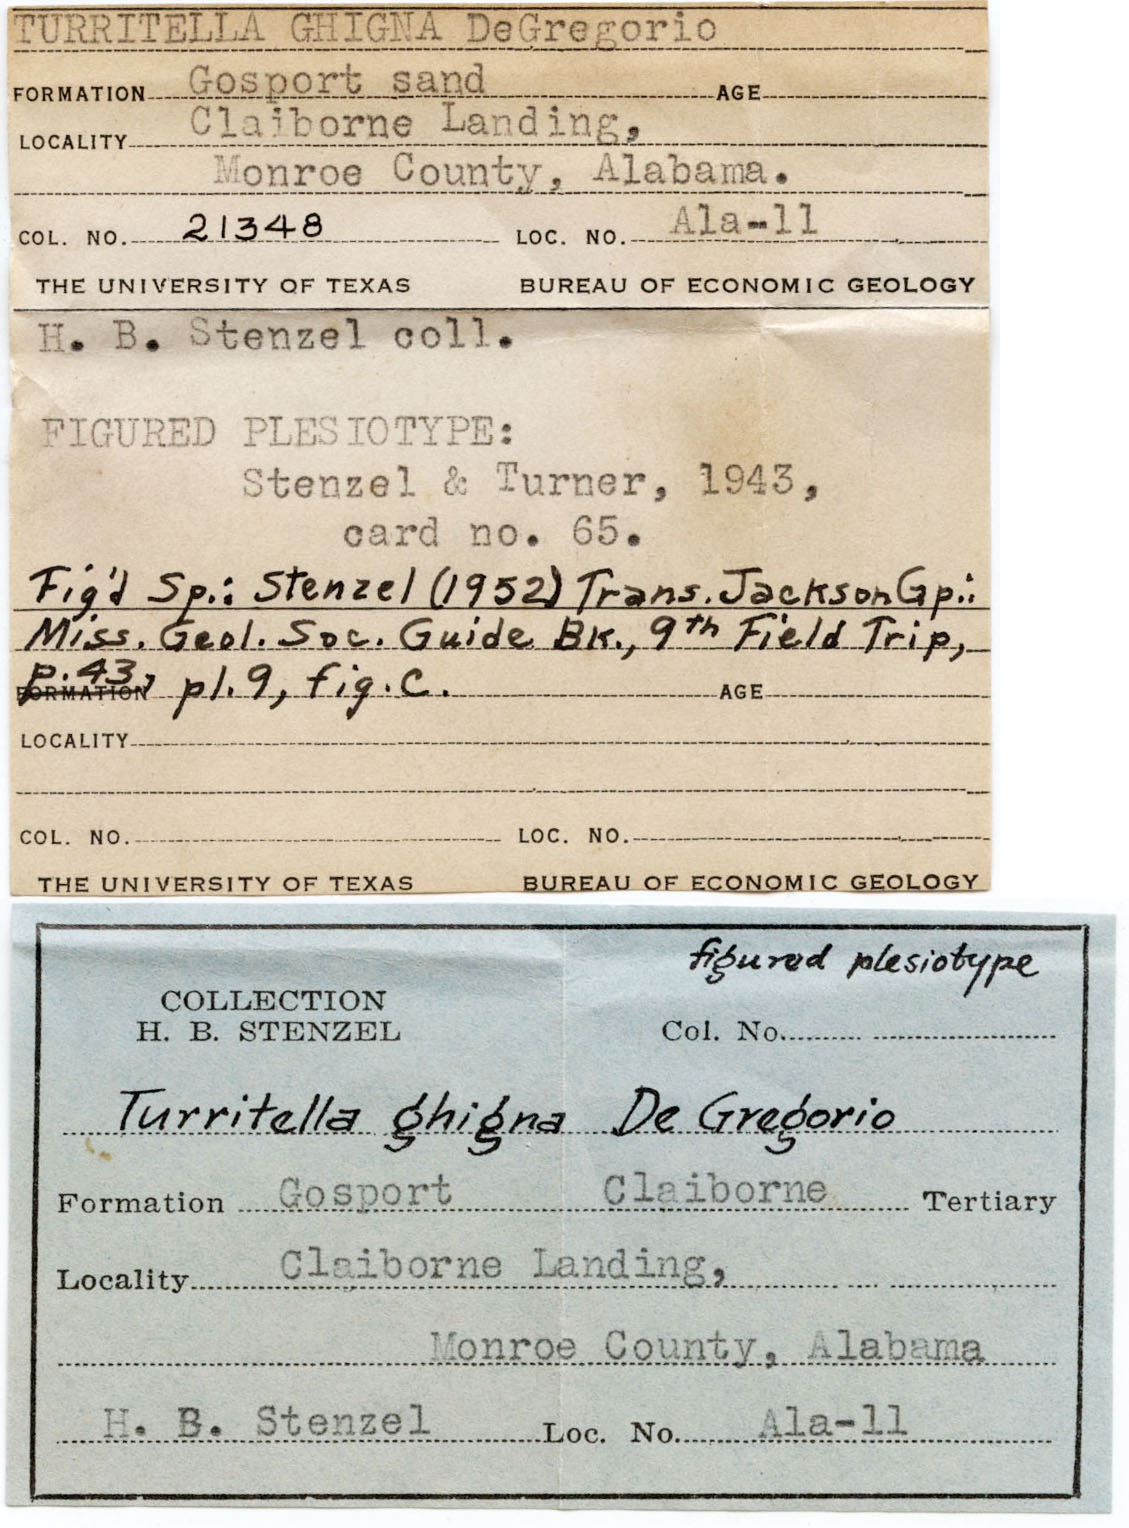 TURRITELLA GHIGNA DeGregorio
FORMATION Gosport sand AGE
LOCALITY Claiborne Landing,
Monroe County, Alabama.
COL. NO. 21348 LOC. NO. Ala-11
THE UNIVERSITY OF TEXAS BUREAU OF ECONOMIC GEOLOGY
H. B. Stenzel coll.
FIGURED PLESIOTYPE:
Stenzel & Turner, 1943,
card no. 65.
Fig'd Sp.: Stenzel (1952) Trans. Jackson Gp.:
Miss. Geol. Soc. Guide Bk., 9th Field Trip,
p.43, pl.9, fig.C.
FORMATION AGE
LOCALITY
COL. NO. LOC. NO.
THE UNIVERSITY OF TEXAS BUREAU OF ECONOMIC GEOLOGY
figured plesiotype
COLLECTION
H. B. STENZEL Col. No.
Turritella ghigna De Gregorio
Formation Gosport Claiborne Tertiary
Locality Claiborne Landing,
Monroe County, Alabama
H. B. Stenzel Loc. No. Ala-11